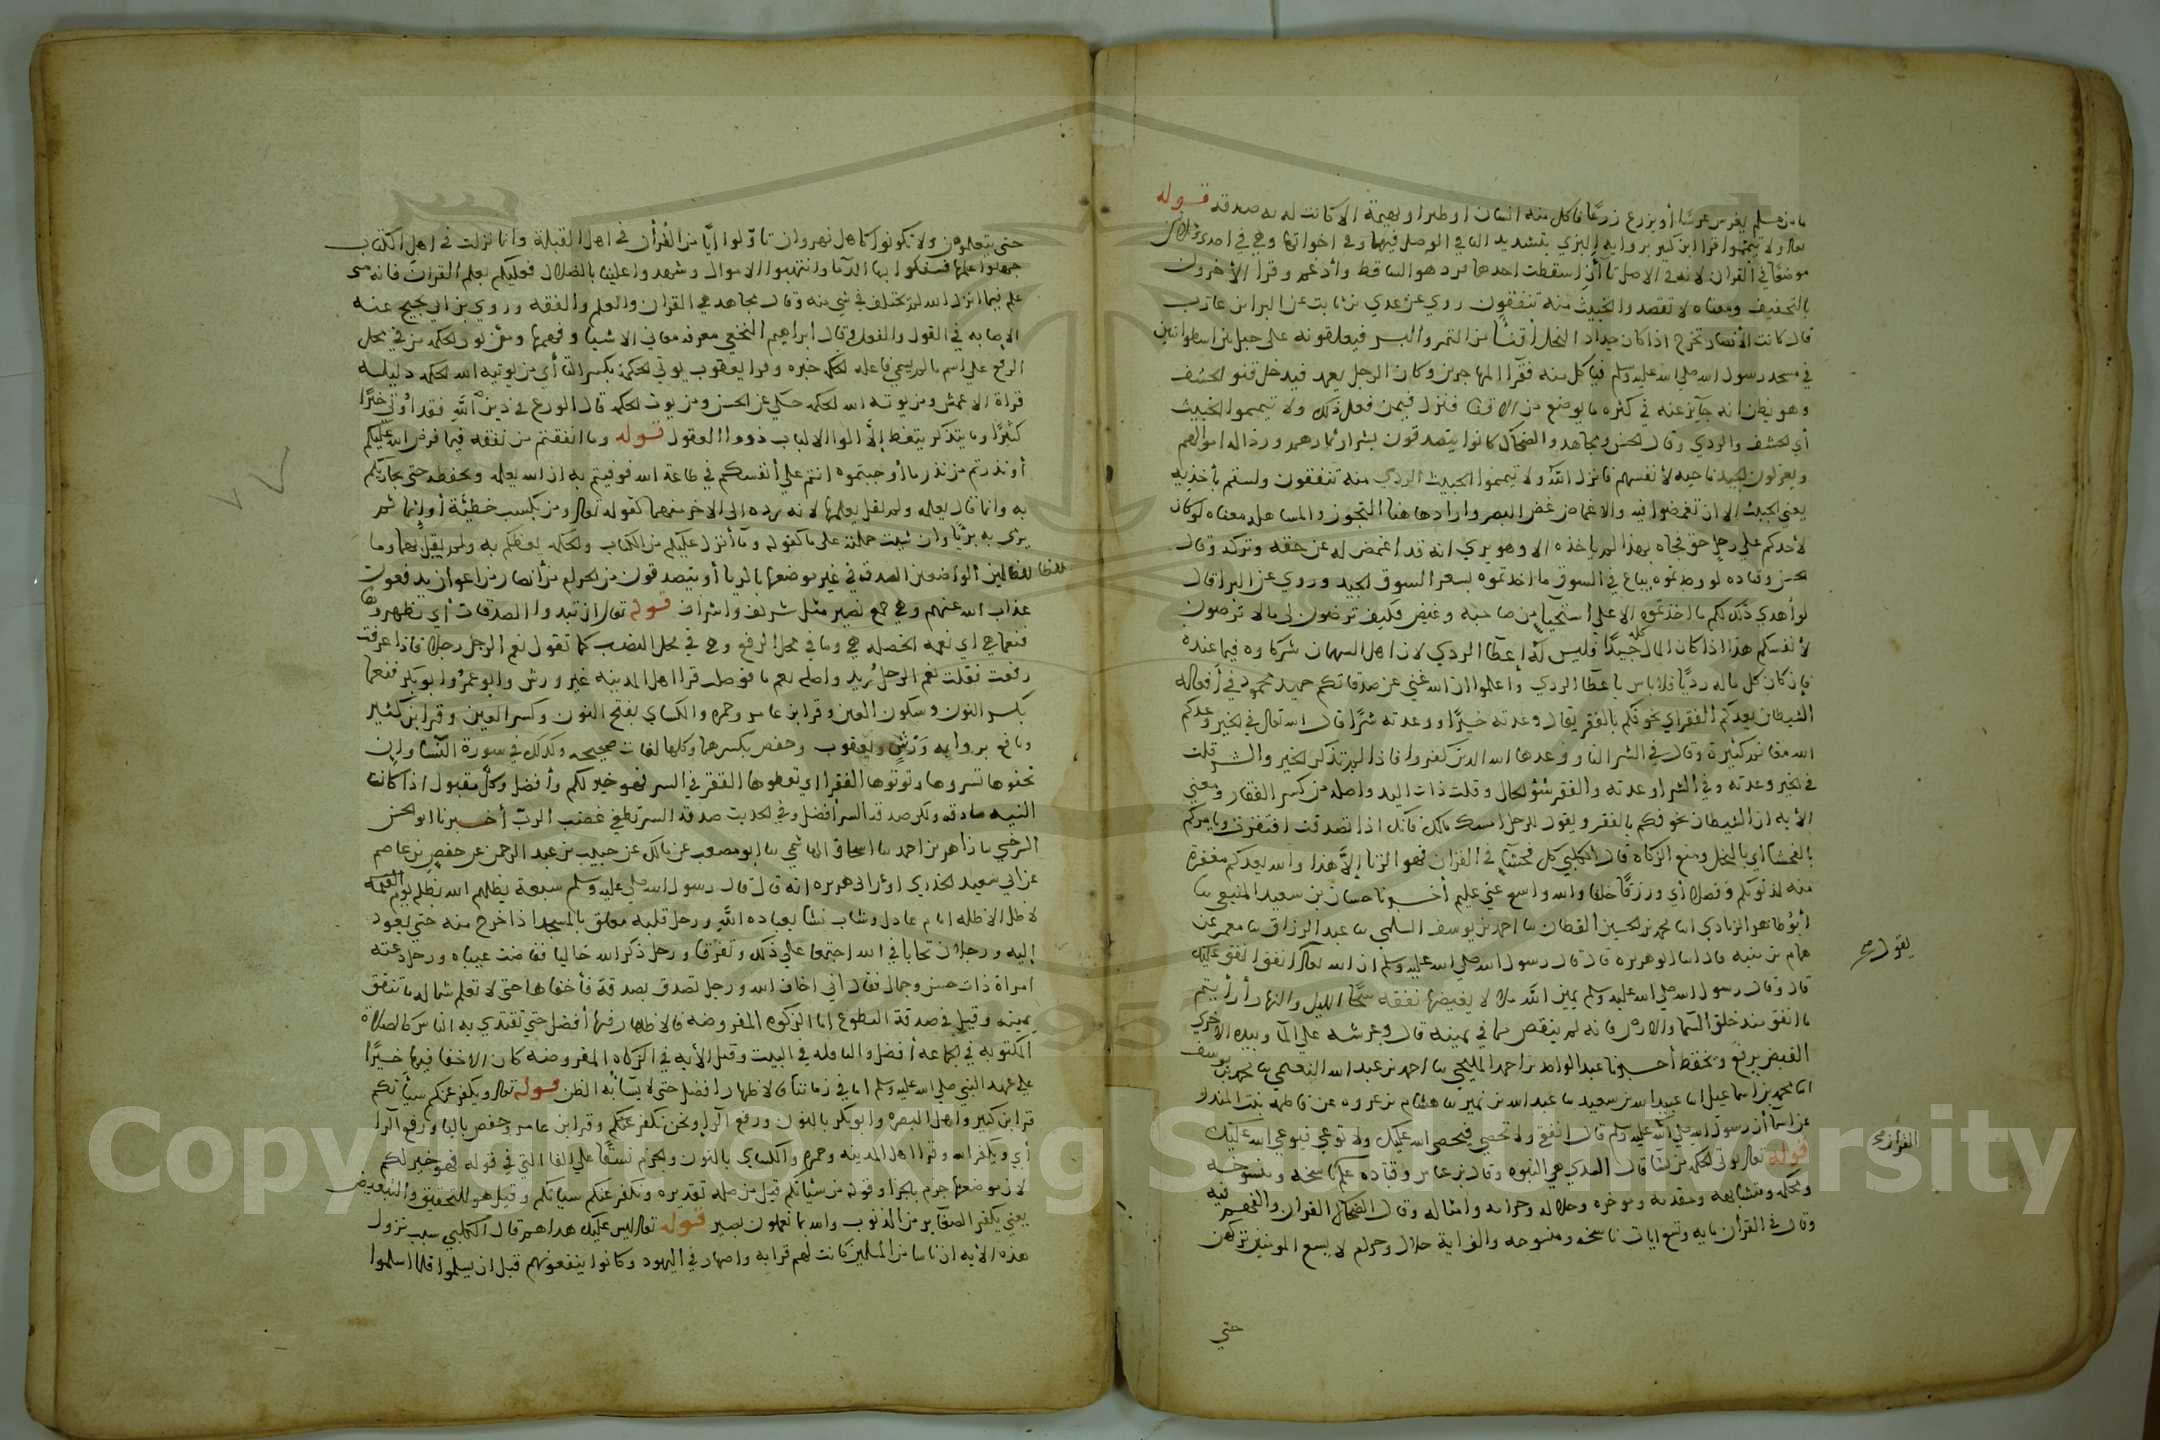 ما من مسلم يغرس غرسا أو يزرع زرعا فياكل منه انسان او طير او بهيمة الا كانت له به صدقة قوله
تعالى ولا تيمموا قرا ابن كثير برواية البزي بتشديد التا في الوصل فيها وفي اخواتها وهي في احدى وثلاثين
موضعا في القران لانه في الاصل تاآن اسقطت احدهما فرد هو الساقط وأدغم وقرا الأخرون
بالتخفيف ومعناه لا تقصدوا الخبيث منه تنفقون روي عن عدي بن ثابت عن البرا بن عازب
قال كانت الأنصار تخرج اذا كان جداد النخل أقنا من التمر والبسر فيعلقونه على حبل بين اسطوانتين
في مسجد رسول الله صلى الله عليه وسلم فياكل منه فقرآ المهاجرين وكان الرجل يعمد فيدخل قنو الحشف
وهو يظن انه جآيز عنه في كثره ما يوضع من الاقنا فنزل فيمن فعل ذلك ولا تيمموا الخبيث
أي الحشف والردي وقال الحسن ومجاهد والضحاك كانوا يتصدقون بشرار ثمارهم ورذاله اموالهم
ويعزلون الجيد ناحيه لأنفسهم فانزل الله ولا تيمموا الخبيث الردي منه تنفقون ولستم بأخذيه
يعني الخبيث الا ان تغمضوا فيه والاغماض غض البصر واراد هاهنا التجوز والمساهله معناه لو كان
لأحدكم على رجل حق فجاه بهذا لم ياخذه الا وهو يري انه قد اغمض له عن حقه وتركه وقال
الحسن وقتاده لو وجدتموه يباع في السوق ما اخذتموه بسعر السوق الجيد وروي عن البرا قال
لو أهدي ذلك لكم ما اخذتموه الا علي استحيآ من صاحبه وغيض فكيف ترضون لي ما لا ترضون
لأنفسكم هذا اذا كان المال كله جيدا فليس له إعطآ الردي لان اهل السهمان شركاوه فيما عنده
فان كان كل ماله رديا فلا باس باعطآ الردي واعلموا ان الله غني عن صدقاتكم حميد محمود في أفعاله
الشيطان يعدكم الفقر اي يخوفكم بالفقر يقال وعدته خيرا ووعدته شرا قال الله تعالى في الخير وعدكم
الله مغانم كثيرة وقال في الشر النار وعدها الله الذين كفروا فاذا لم تذكر الخير والشر قلت
في الخير وعدته وفي الشر اوعدته والفقر سؤ الحال وقلت ذات اليد واصله من كسر الفقار ومعني
الأيه ان الشيطان يخوفكم بالفقر ويقول للرجل امسك مالك فانك اذا تصدقت افتقرت ويامركم
بالفحشا اي بالبخل ومنع الزكاه قال الكلبي كل فحشآ في القران فهو الزنا إلا هذا والله يعدكم مغفرة
منه لذنوبكم وفضلا أي ورزقا خلفا والله واسع غني عليم أخبرنا حسان بن سعيد المنيعي نا
أبو طاهر الزيادي انا محمد بن الحسين القطان نا احمد بن يوسف السلمي نا عبد الرزاق نا معمر عن
همام بن منبه قال نا ابو هريره قال قال رسول الله صلى الله عليه وسلم ان الله تعالى انفق انفق عليك
يقول صح
قال وقال رسول الله صلى الله عليه وسلم يمين الله ملا لا يغيضها نفقه سحآ الليل والنهار أرأيتم
ما انفق منذ خلق السما والارض فانه لم ينقص مما في يمينه قال وعرشه علي المآ وبيده الأخري
القبض يرفع ويخفظ أخبرنا عبد الواحد بن احمد المليحي نا احمد بن عبد الله النعيمي نا محمد بن يوسف
انا محمد بن اسماعيل انا عبيد الله بن سعيد نا عبد الله بن نمير نا هشام بن عروه عن فاطمه بنت المنذر
عن اسمآ أن رسول الله صلى الله عليه وسلم قال انفقي ولا تحصي فيحصي الله عليك ولا توعي فيوعي الله عليك
قوله تعالى يوتي الحكمه من يشا قال السدي هي النبوه وقال بن عباس وقتاده علم ناسخه ومنسوخه
القران صح
ومحكمه ومتشابهه ومقدمه وموخره وحلاله وحرامه وامثاله وقال الضحاك القران والفهم فيه
وقال في القرأن مايه وتسع ايات ناسخه ومنسوخه والف اية حلال وحرام لا يسع المومنين تركهن
حتي
حتي يتعلموهن ولا تكونوا كاهل نهروان تاولوا ايا من القرأن في اهل القبلة وانما نزلت في اهل الكتاب
جهلوا علمها فسفكوا بها الدما وانتهبوا الاموال وشهدوا علينا بالضلال فعليكم بعلم القران فانه من
علم فيما انزل الله لم يختلف في شي منه وقال مجاهد هي القران والعلم والفقه وروي بن ابي نجيح عنه
الإصابه في القول والفعل وقال ابراهيم النخعي معرفه معاني الاشيا وفهمها ومن يوت الحكمه من في محل
الرفع على اسم ما لم يسمي فاعله الحكمه خبره وقرا يعقوب يوتي الحكمة بكسر التا أي من يوتيه الله الحكمه دليله
قراة الاعمش ومن يوته الله الحكمه حكي عن الحسن ومن يوت الحكمه قال الورع في دين الله فقد اوتي خيرا
كثيرا وما يتذكر يتعظ إلا الوا الالباب ذووا العقول قوله وما انفقتم من نفقه فيما فرض الله عليكم
أو نذرتم من نذر ما أوجبتموه انتم علي أنفسكم في طاعة الله فوفيتم به ان الله يعلمه ويحفظه حتى يجازيكم
به وانما قال يعلمه ولم يقل يعلمها لانه رده الى الاخر منهما كقوله تعالى ومن يكسب خطيئة أو إثما ثم
يرم به بريا وان شيت حملته على ما كقوله وما أنزل عليكم من الكتاب والحكمه يعظكم به ولم يقل بهما وما
للظالمين الواضعين الصدقه في غير موضعها بالريا أو يتصدقون من الحرام من أنصار من اعوان يدفعون
عذاب الله عنهم وهي جمع نصير مثل شريف واشراف قوله تعالى ان تبدوا الصدقات أي تظهروها
فنعما هي اي نعمه الخصله هي وما في محل الرفع وهي في محل النصب كما تقول نعم الرجل رجلا فاذا عرفت
رفعت فقلت نعم الرجل زيد واصله نعم ما فوصلت قرا اهل المدينه غير ورش وابو عمرو وابو بكر فنعما
بكسر النون وسكون العين وقرا بن عامر وحمزه والكساي بفتح النون وكسر العين وقرا بن كثير
ونافع بروايه ورش ويعقوب وحفص بكسرهما وكلها لغات صحيحه وكذلك في سورة النسا وان
تخفوها تسروها وتوتوها الفقرا اي تعطوها الفقر في السر فهو خير لكم وأفضل وكل مقبول اذا كانت
النيه صادقه ولكن صدقه السر أفضل وفي الحديث صدقه السر تطفي غضب الرب أخبرنا ابو الحسن
السرخسي نا زاهر بن احمد نا اسحاق الهاشمي نا ابو مصعب عن مالك عن خبيب بن عبد الرحمن عن حفص بن عاصم
عن ابي سعيد الخدري او عن ابي هريره انه قال قال رسول الله صلى الله عليه وسلم سبعة يظلهم الله بظله يوم القيمه
لا ظل الا ظله امام عادل وشاب نشا بعباده الله ورجل قلبه معلق بالمسجد اذا خرج منه حتي يعود
إليه ورجلان تحابا في الله اجتمعا علي ذلك وتفرقا ورجل ذكر الله خاليا ففاضت عيناه ورجل دعته
امراة ذات حسن وجمال فقال اني اخاف الله ورجل تصدق بصدقة فأخفاها حتى لا تعلم شماله ما تنفق
يمينه وقيل في صدقة التطوع اما الزكوة المفروضه فالاظهار فيها أفضل حتي تقتدي به الناس كالصلاة
المكتوبه في الجماعه أفضل والنافله في البيت وقيل الأيه في الزكاه المفروضه كان الاخفا فيها خيرا
علي عهد النبي صلى الله عليه وسلم اما في زماننا فالاظهار افضل حتى لا يسآ به الظن قوله تعالى ويكفر عنكم سيأتكم
قرا بن كثير واهل البصره وابو بكر بالنون ورفع الرا اي ونحن نكفر عنكم وقرا بن عامر وحفص باليا ورفع الرا
أي ويكفر الله وقرا اهل المدينه وحمزه والكساي بالنون والجزم نسقا علي الفا التي في قوله فهو خير لكم
لان موضعها جزم بالجزا وقوله من سيئاتكم قيل من صله تقديره ونكفر عنكم سياتكم وقيل هو للتحقيق والتبعيض
يعني يكفر الصغاير من الذنوب والله بما تعملون بصير قوله تعالى ليس عليك هداهم قال الكلبي سبب نزول
هذه الأيه ان ناسا من المسلمين كانت لهم قرابه واصهار في اليهود وكانوا ينفعونهم قبل ان يسلموا فلما اسلموا
Copyright © King Saud University